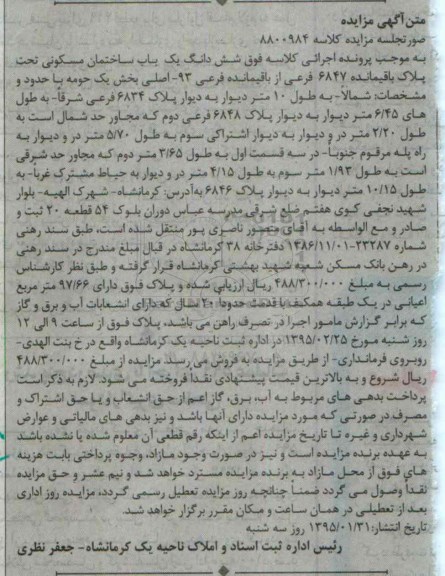 متن آگهی مزایده
صورتجلسه مزایده کلاسه ۸۸۰۰۹۸۴
به موجب پرونده اجرائی کلاسه فوق شش دانگ یک باب ساختمان مسکونی تحت
پلاک باقیمانده ۶۸۴۷ فرعی از باقیمانده فرعی ۹۳- اصلی بخش یک حومه با حدود و
مشخصات: شمالاً- به طول ۱۰ متر دیوار به دیوار پلاک ۶۸۳۴ فرعی شرقاً- به طول
های ۶/۴۵ متر دیوار به دیوار پلاک ۶۸۴۸ فرعی دوم که مجاور حد شمال است به
طول ۲/۲۰ متر در و دیوار به دیوار اشتراکی سوم به طول ۵/۷۰ متر در و دیوار به
راه پله مرقوم جنوباً- در سه قسمت اول به طول ۳/۶۵ متر دوم که مجاور حد شرقی
است به طول ۱/۹۳ متر سوم به طول ۴/۱۵ متر در و دیوار به حیاط مشترک غرباً- به
طول ۱۰/۱۵ متر دیوار به دیوار پلاک ۶۸۴۶ به آدرس: کرمانشاه- شهرک الهیه- بلوار
شهید نجفی کوی هفتم ضلع شرقی مدرسه عباس دوران بلوک ۵۴ قطعه ۲۰ ثبت و
صادر و مع الواسطه به آقای منصور ناصری پور منتقل شده است، طبق سند رهنی
شماره ۲۳۲۸۷-۱۳۸۶/۱۱/۰۱ دفترخانه ۳۸ کرمانشاه در قبال مبلغ مندرج در سند رهنی
در رهن بانک مسکن شعبه شهید بهشتی کرمانشاه قرار گرفته و طبق نظر کارشناس
رسمی به مبلغ ۴۸۸/۳۰۰/۰۰۰ ریال ارزیابی شده و پلاک فوق دارای ۹۷/۶۶ متر مربع
اعیانی در یک طبقه همکف با قدمت حدوداً ۲۰ سال که دارای انشعابات آب و برق و گاز
که برابر گزارش مامور اجرا در تصرف راهن می باشد، پلاک فوق از ساعت ۹ الی ۱۲
روز شنبه مورخ ۱۳۹۵/۰۲/۲۵ در اداره ثبت ناحیه یک کرمانشاه واقع در خ بنت الهدی-
روبروی فرمانداری- از طریق مزایده به فروش می رسد مزایده از مبلغ ۴۸۸/۳۰۰/۰۰۰
ریال شروع و به بالاترین قیمت پیشنهادی نقدا فروخته می شود. لازم به ذکر است
پرداخت بدهی های مربوط به آب، برق، گاز اعم از حق انشعاب و یا حق اشتراک و
مصرف در صورتی که مورد مزایده دارای آنها باشد و نیز بدهی های مالیاتی و عوارض
شهرداری و غیره تا تاریخ مزایده اعم از اینکه رقم قطعی آن معلوم شده یا نشده باشد
به عهده برنده مزایده است و نیز در صورت وجود مازاد، وجوه پرداختی بابت هزینه
های فوق از محل مازاد به برنده مزایده مسترد خواهد شد و نیم عشر و حق مزایده
نقداً وصول می گردد ضمناً چنانچه روز مزایده تعطیل رسمی گردد، مزایده روز اداری
بعد از تعطیلی در همان ساعت و مکان مقرر برگزار خواهد شد.
تاریخ انتشار: ۱۳۹۵/۰۱/۳۱ روز سه شنبه
رئیس اداره ثبت اسناد و املاک ناحیه یک کرمانشاه- جعفر نظری